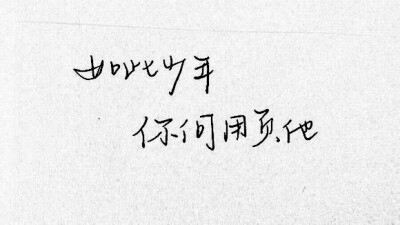 如此少年
你何用他